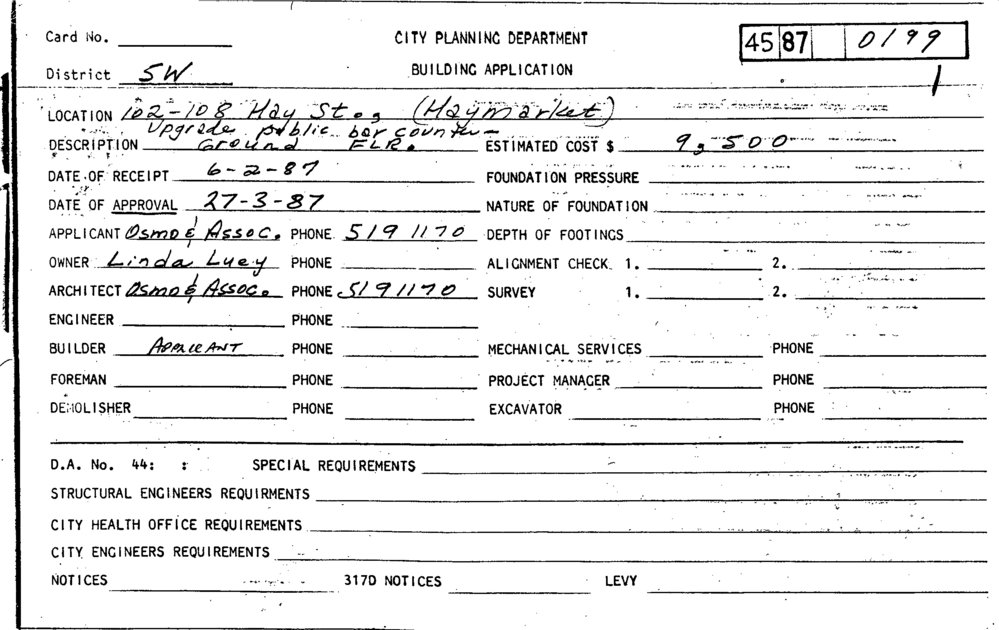 Card No. CITY PLANNING DEPARTMENT 45 87 0199
District SW BUILDING APPLICATION 1
LOCATION 102-108 Hay St., (Haymarket)
Upgrade public bar counter-
DESCRIPTION Ground FLR. ESTIMATED COST $ 9,500
DATE OF RECEIPT 6-2-87 FOUNDATION PRESSURE
DATE OF APPROVAL 27-3-87 NATURE OF FOUNDATION
APPLICANT Osmo & Assoc. PHONE 519 1170 DEPTH OF FOOTINGS
OWNER Linda Luey PHONE ALIGNMENT CHECK 1. 2.
ARCHITECT Osmo & Assoc. PHONE 5191170 SURVEY 1. 2.
ENGINEER PHONE
BUILDER APPLICANT PHONE MECHANICAL SERVICES PHONE
FOREMAN PHONE PROJECT MANAGER PHONE
DEMOLISHER PHONE EXCAVATOR PHONE
D.A. No. 44: : SPECIAL REQUIREMENTS
STRUCTURAL ENGINEERS REQUIRMENTS
CITY HEALTH OFFICE REQUIREMENTS
CITY ENGINEERS REQUIREMENTS
NOTICES 317D NOTICES LEVY